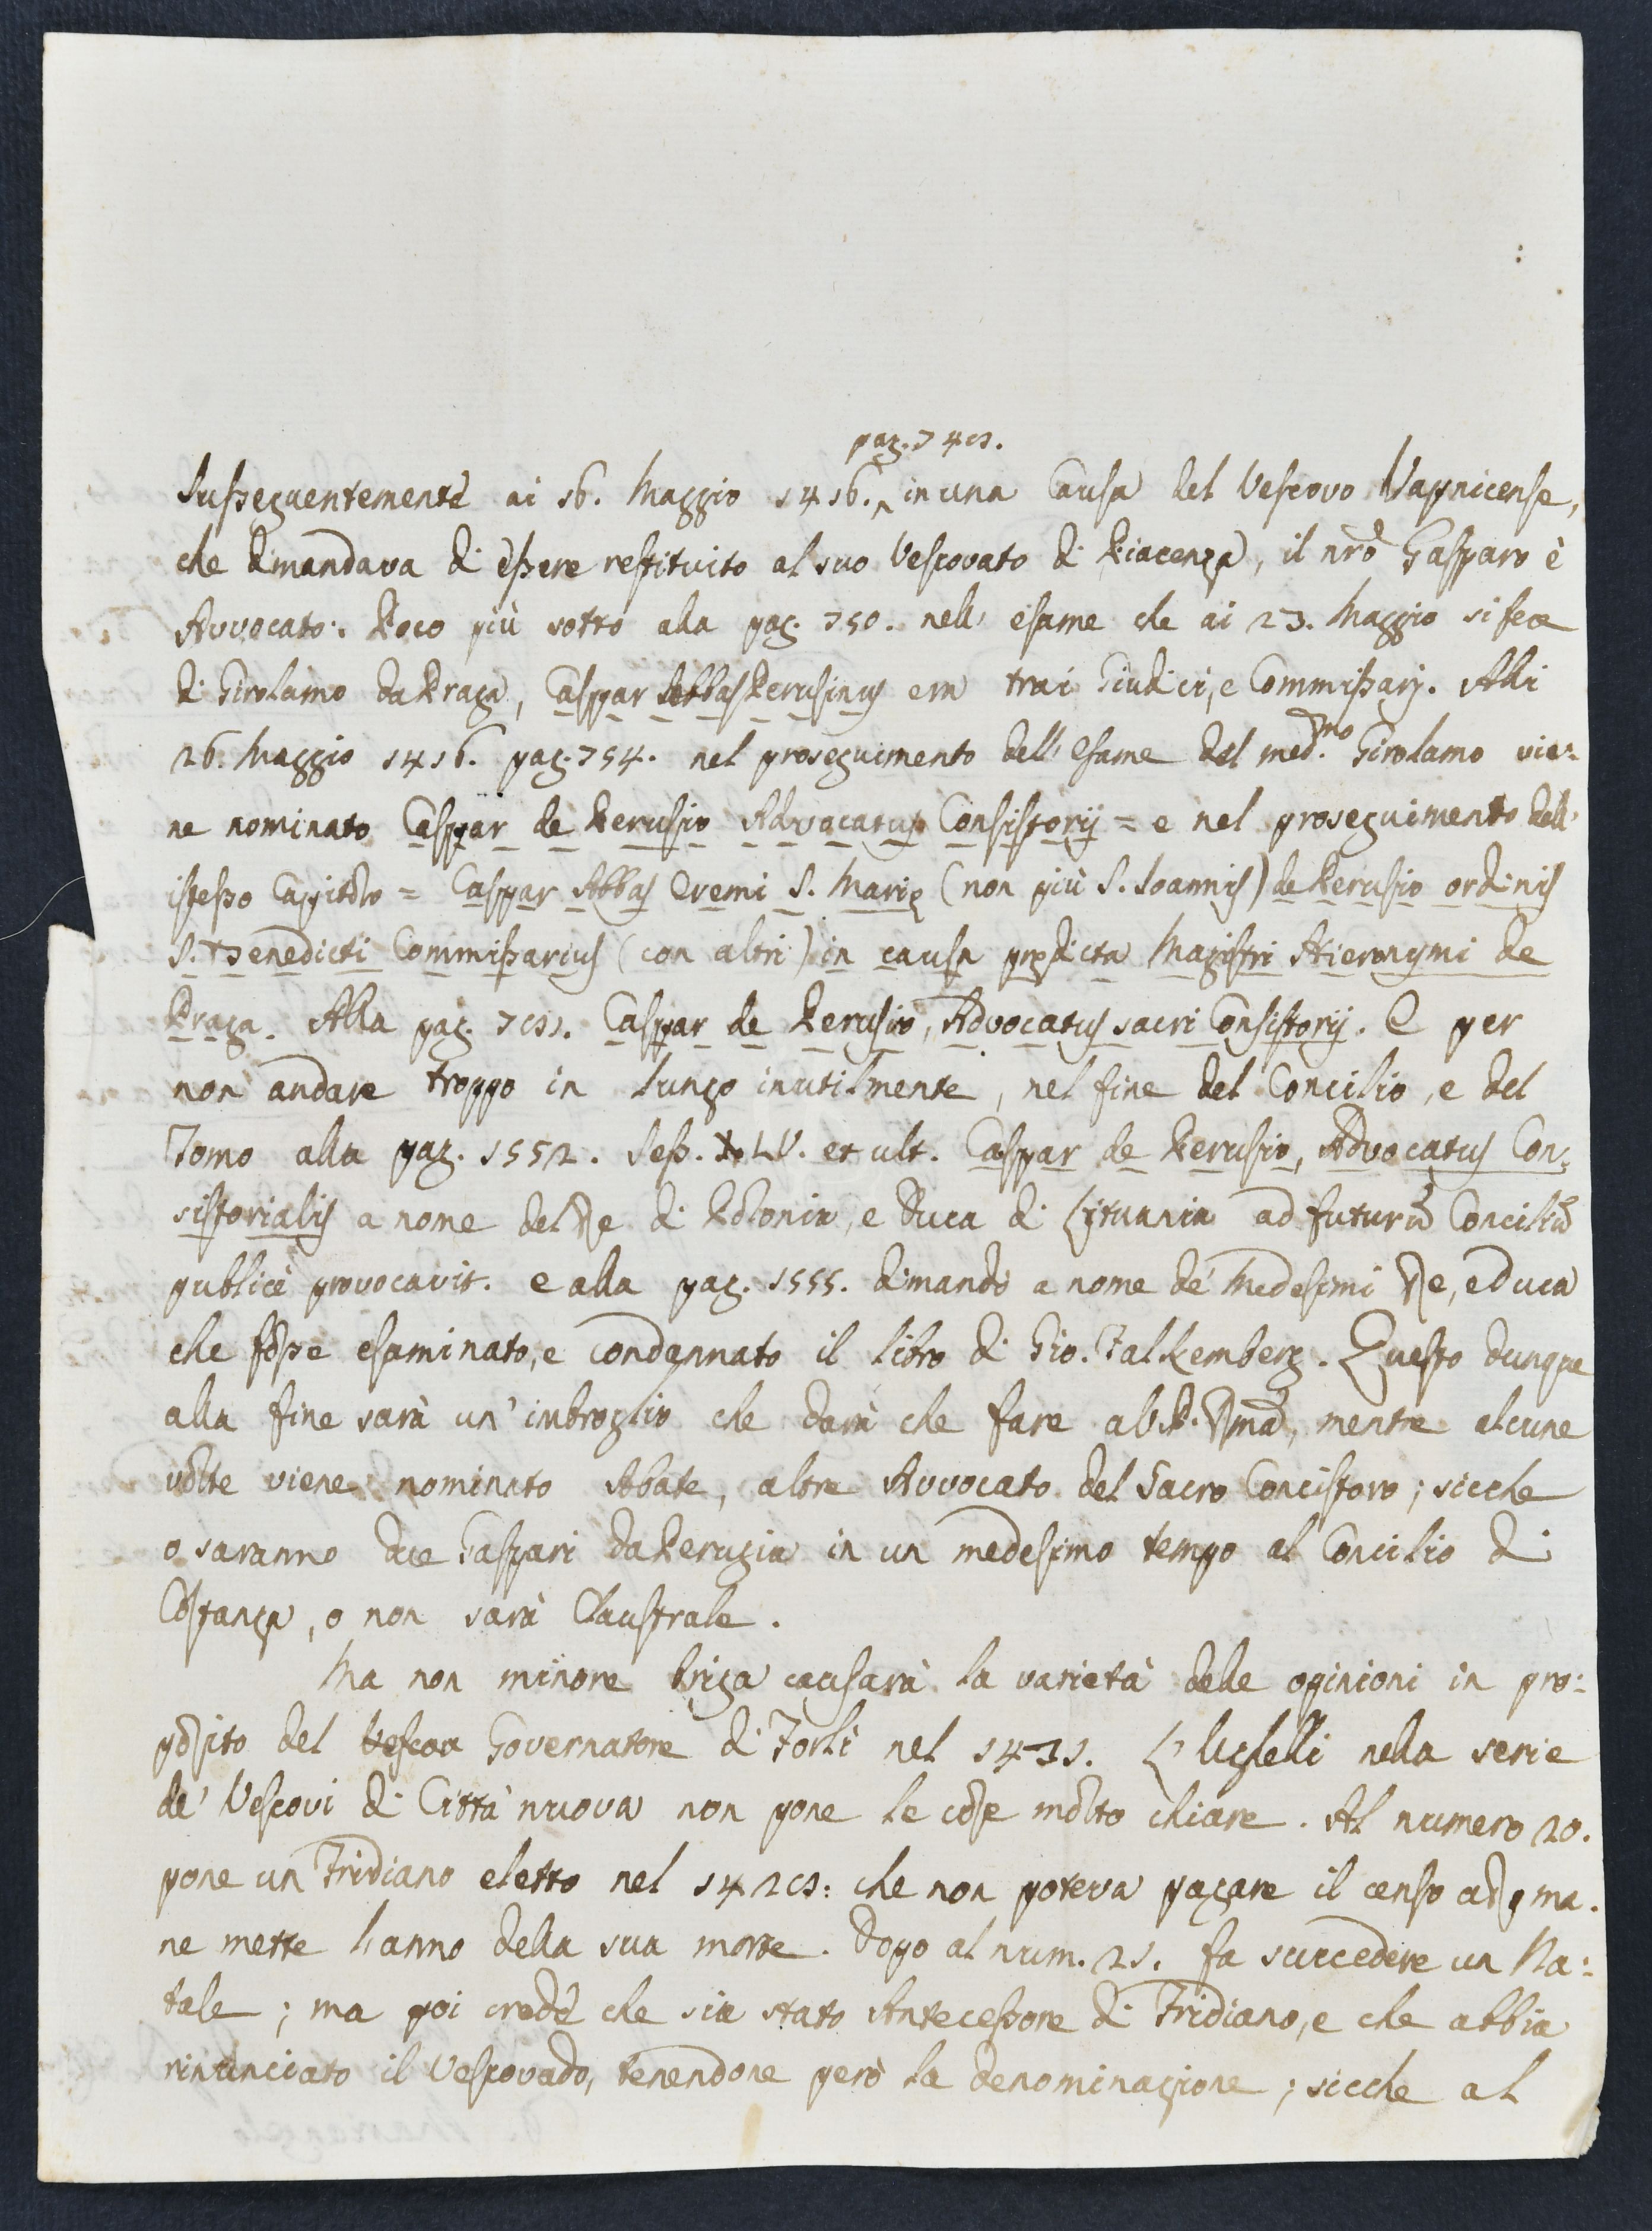 pag. 749.
Susseguentemente ai 16. Maggio 1416. in una Causa del Vescovo Vapnicense,
che dimandava di essere restituito al suo Vescovato di Piacenza, il nrõ Gasparo è
Avvocato. Poco più sotto alla pag. 750. nell' esame che ai 23. Maggio si fece
di Girolamo da Praga, Caspar Abbas Perusinus era trai Giudici, e Commissarj. Alli
26. Maggio 1416. pag. 754. nel proseguimento dell' esame del med.mo Girolamo vie:
ne nominato Caspar de Perusio Advocatus Consistorij = e nel proseguimento dell'
istesso Capitolo = Caspar Abbas Eremi S. Marię (non più S. Ioannis) de Perusio ordinis
S. Benedicti Commissarius (con altri) in causa prędicta Magistri Hieronymi de
Praga. Alla pag. 791. Caspar de Perusio, Advocatus sacri Consistorij. E per
non andare troppo in lungo inutilmente, nel fine del Concilio, e del
Tomo alla pag. 1552. Sess. XLV. et ult. Caspar de Perusio, Advocatus Con:
sistorialis a nome del Re di Polonia, e Duca di Lituania ad futurũ Conciliũ
publicè provocavit. e alla pag. 1555. dimandò a nome de' medesimi Re, e Duca
che fosse esaminato, e condannato il libro di Gio. Falkemberg. Questo dunque
alla fine sarà un' imbroglio che darà che fare al P. Rmõ, mentre alcune
volte viene nominato Abate, altre Avvocato del Sacro Concistoro; sicche
o saranno due Gaspari da Perugia in un medesimo tempo al Concilio di
Costanza, o non sarà Claustrale.
Ma non minore briga causarà la varietà delle opinioni in pro:
posito del Vescov Governatore di Forlì nel 1431. L' Ughelli nella serie
de' Vescovi di Città nuova non pone le cose molto chiare. Al numero 20.
pone un Fridiano eletto nel 1429: che non poteva pagare il censo a Roma.
ne mette l'anno della sua morte. Dopo al num. 21. fa succedere un Na:
tale; ma poi crede che sia stato Antecessore di Fridiano, e che abbia
rinunciato il Vescovado, tenendone però la denominazione; sicche al